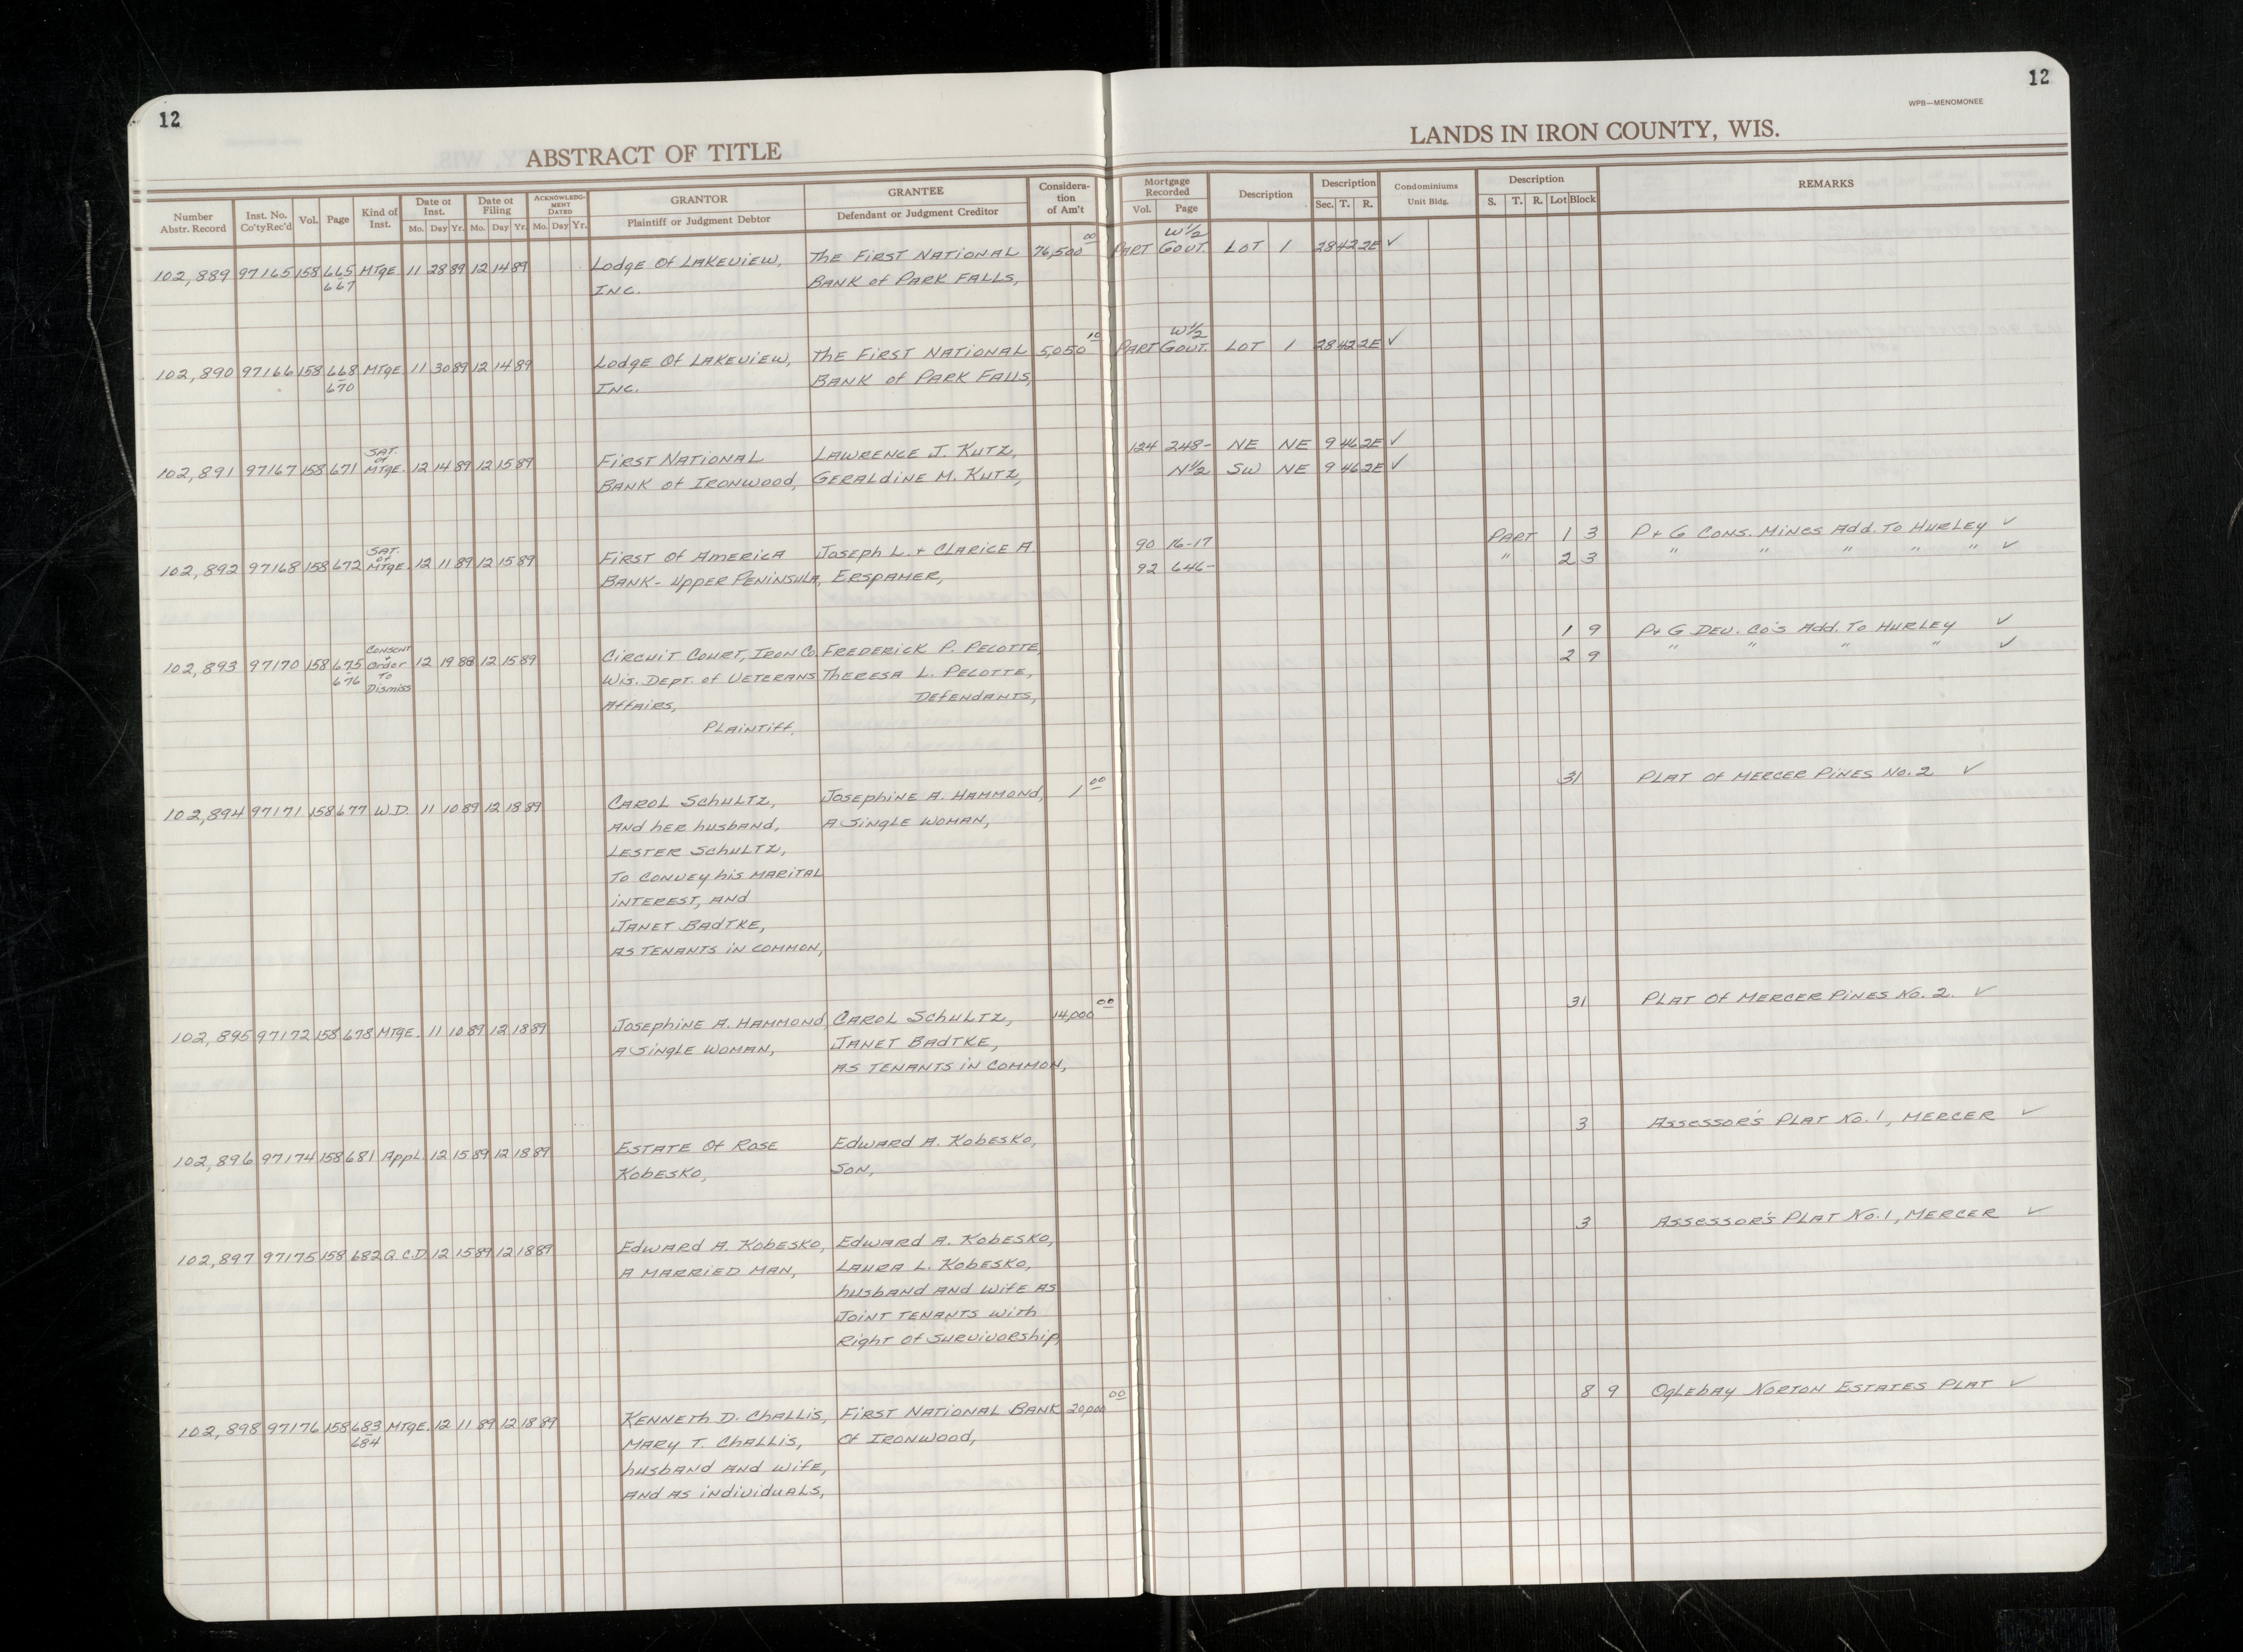 12
12
WPB—MENOMONEE
ABSTRACT OF TITLE
LANDS IN IRON COUNTY, WIS.
Number Abstr. Record | Inst. No. Co'ty Rec'd | Vol. | Page | Kind of Inst. | Date of Inst. Mo. Day Yr. | Date of Filing Mo. Day Yr. | ACKNOWLEDGMENT DATED Mo. Day Yr. | GRANTOR Plaintiff or Judgment Debtor | GRANTEE Defendant or Judgment Creditor | Consideration of Am't | Mortgage Recorded Vol. Page | Description | Description Sec. T. R. | Condominiums Unit Bldg. | Description S. T. R. Lot Block | REMARKS
102,889 97165 158 665 MTgE 11 28 89 12 14 89 Lodge Of Lakeview, The First National 76,500 00 Part W 1/2 Govt. Lot 1 28 42 2E ✓
667 Inc. Bank of Park Falls,
102,890 97166 158 668 MTgE. 11 30 89 12 14 89 Lodge Of Lakeview, The First National 5,050 10 Part W 1/2 Govt. Lot 1 28 42 2E ✓
670 Inc. Bank of Park Falls,
102,891 97167 158 671 Sat. of MTgE. 12 14 89 12 15 89 First National Lawrence J. Kutz, 124 248- NE NE 9 46 2E ✓
Bank of Ironwood, Geraldine M. Kutz, N 1/2 SW NE 9 46 2E ✓
102,892 97168 158 672 Sat. of MTgE. 12 11 89 12 15 89 First Of America Joseph L. + Clarice A. 90 16-17 Part 1 3 P+G Cons. Mines Add. To Hurley ✓
Bank- Upper Peninsula, Erspamer, 92 646- " 2 3 " " " " " ✓
102,893 97170 158 675 Consent + Order To Dismiss 12 19 88 12 15 89 Circuit Court, Iron Co. Frederick P. Pelotte, 1 9 P+G Dev. Co's Add. To Hurley ✓
676 Wis. Dept. of Veterans Theresa L. Pelotte, 2 9 " " " " ✓
Affairs, Defendants,
Plaintiff,
102,894 97171 158 677 W.D. 11 10 89 12 18 89 Carol Schultz, Josephine A. Hammond, 1 00 31 Plat Of Mercer Pines No. 2 ✓
and her husband, a single woman,
Lester Schultz,
to convey his marital
interest, and
Janet Badtke,
as tenants in common,
102,895 97172 158 678 MTgE. 11 10 89 12 18 89 Josephine A. Hammond, Carol Schultz, 14,000 00 31 Plat Of Mercer Pines No. 2. ✓
a single woman, Janet Badtke,
as tenants in common,
102,896 97174 158 681 Appl. 12 15 89 12 18 89 Estate Of Rose Edward A. Kobesko, 3 Assessor's Plat No. 1, Mercer ✓
Kobesko, Son,
102,897 97175 158 682 Q.C.D. 12 15 89 12 18 89 Edward A. Kobesko, Edward A. Kobesko, 3 Assessor's Plat No. 1, Mercer ✓
a married man, Laura L. Kobesko,
husband and wife as
joint tenants with
right of survivorship,
102,898 97176 158 683 MTgE. 12 11 89 12 18 89 Kenneth D. Challis, First National Bank 20,000 00 8 9 Oglebay Norton Estates Plat ✓
684 Mary T. Challis, Of Ironwood,
husband and wife,
and as individuals,